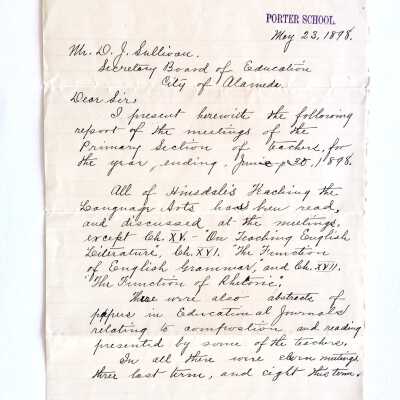 PORTER SCHOOL.
May 23, 1898.
Mr. D. J. Sullivan.
Secretary Board of Education
City of Alameda.
Dear Sir,
I present herewith the following
report of the meetings of the
Primary Section of teachers, for
the year, ending, June 30, 1898.
All of Hinsdale's Teaching the
Language Arts has been read,
and discussed at the meetings,
except Ch. XV. - "On Teaching English
Literature, Ch. XVI. "The Function
of English Grammar, and Ch. XVII.
"The Function of Rhetoric."
There were also abstracts of
papers in Educational Journals
relating to composition, and reading
presented by some of the teachers.
In all there were eleven meetings
three last term, and eight this term.